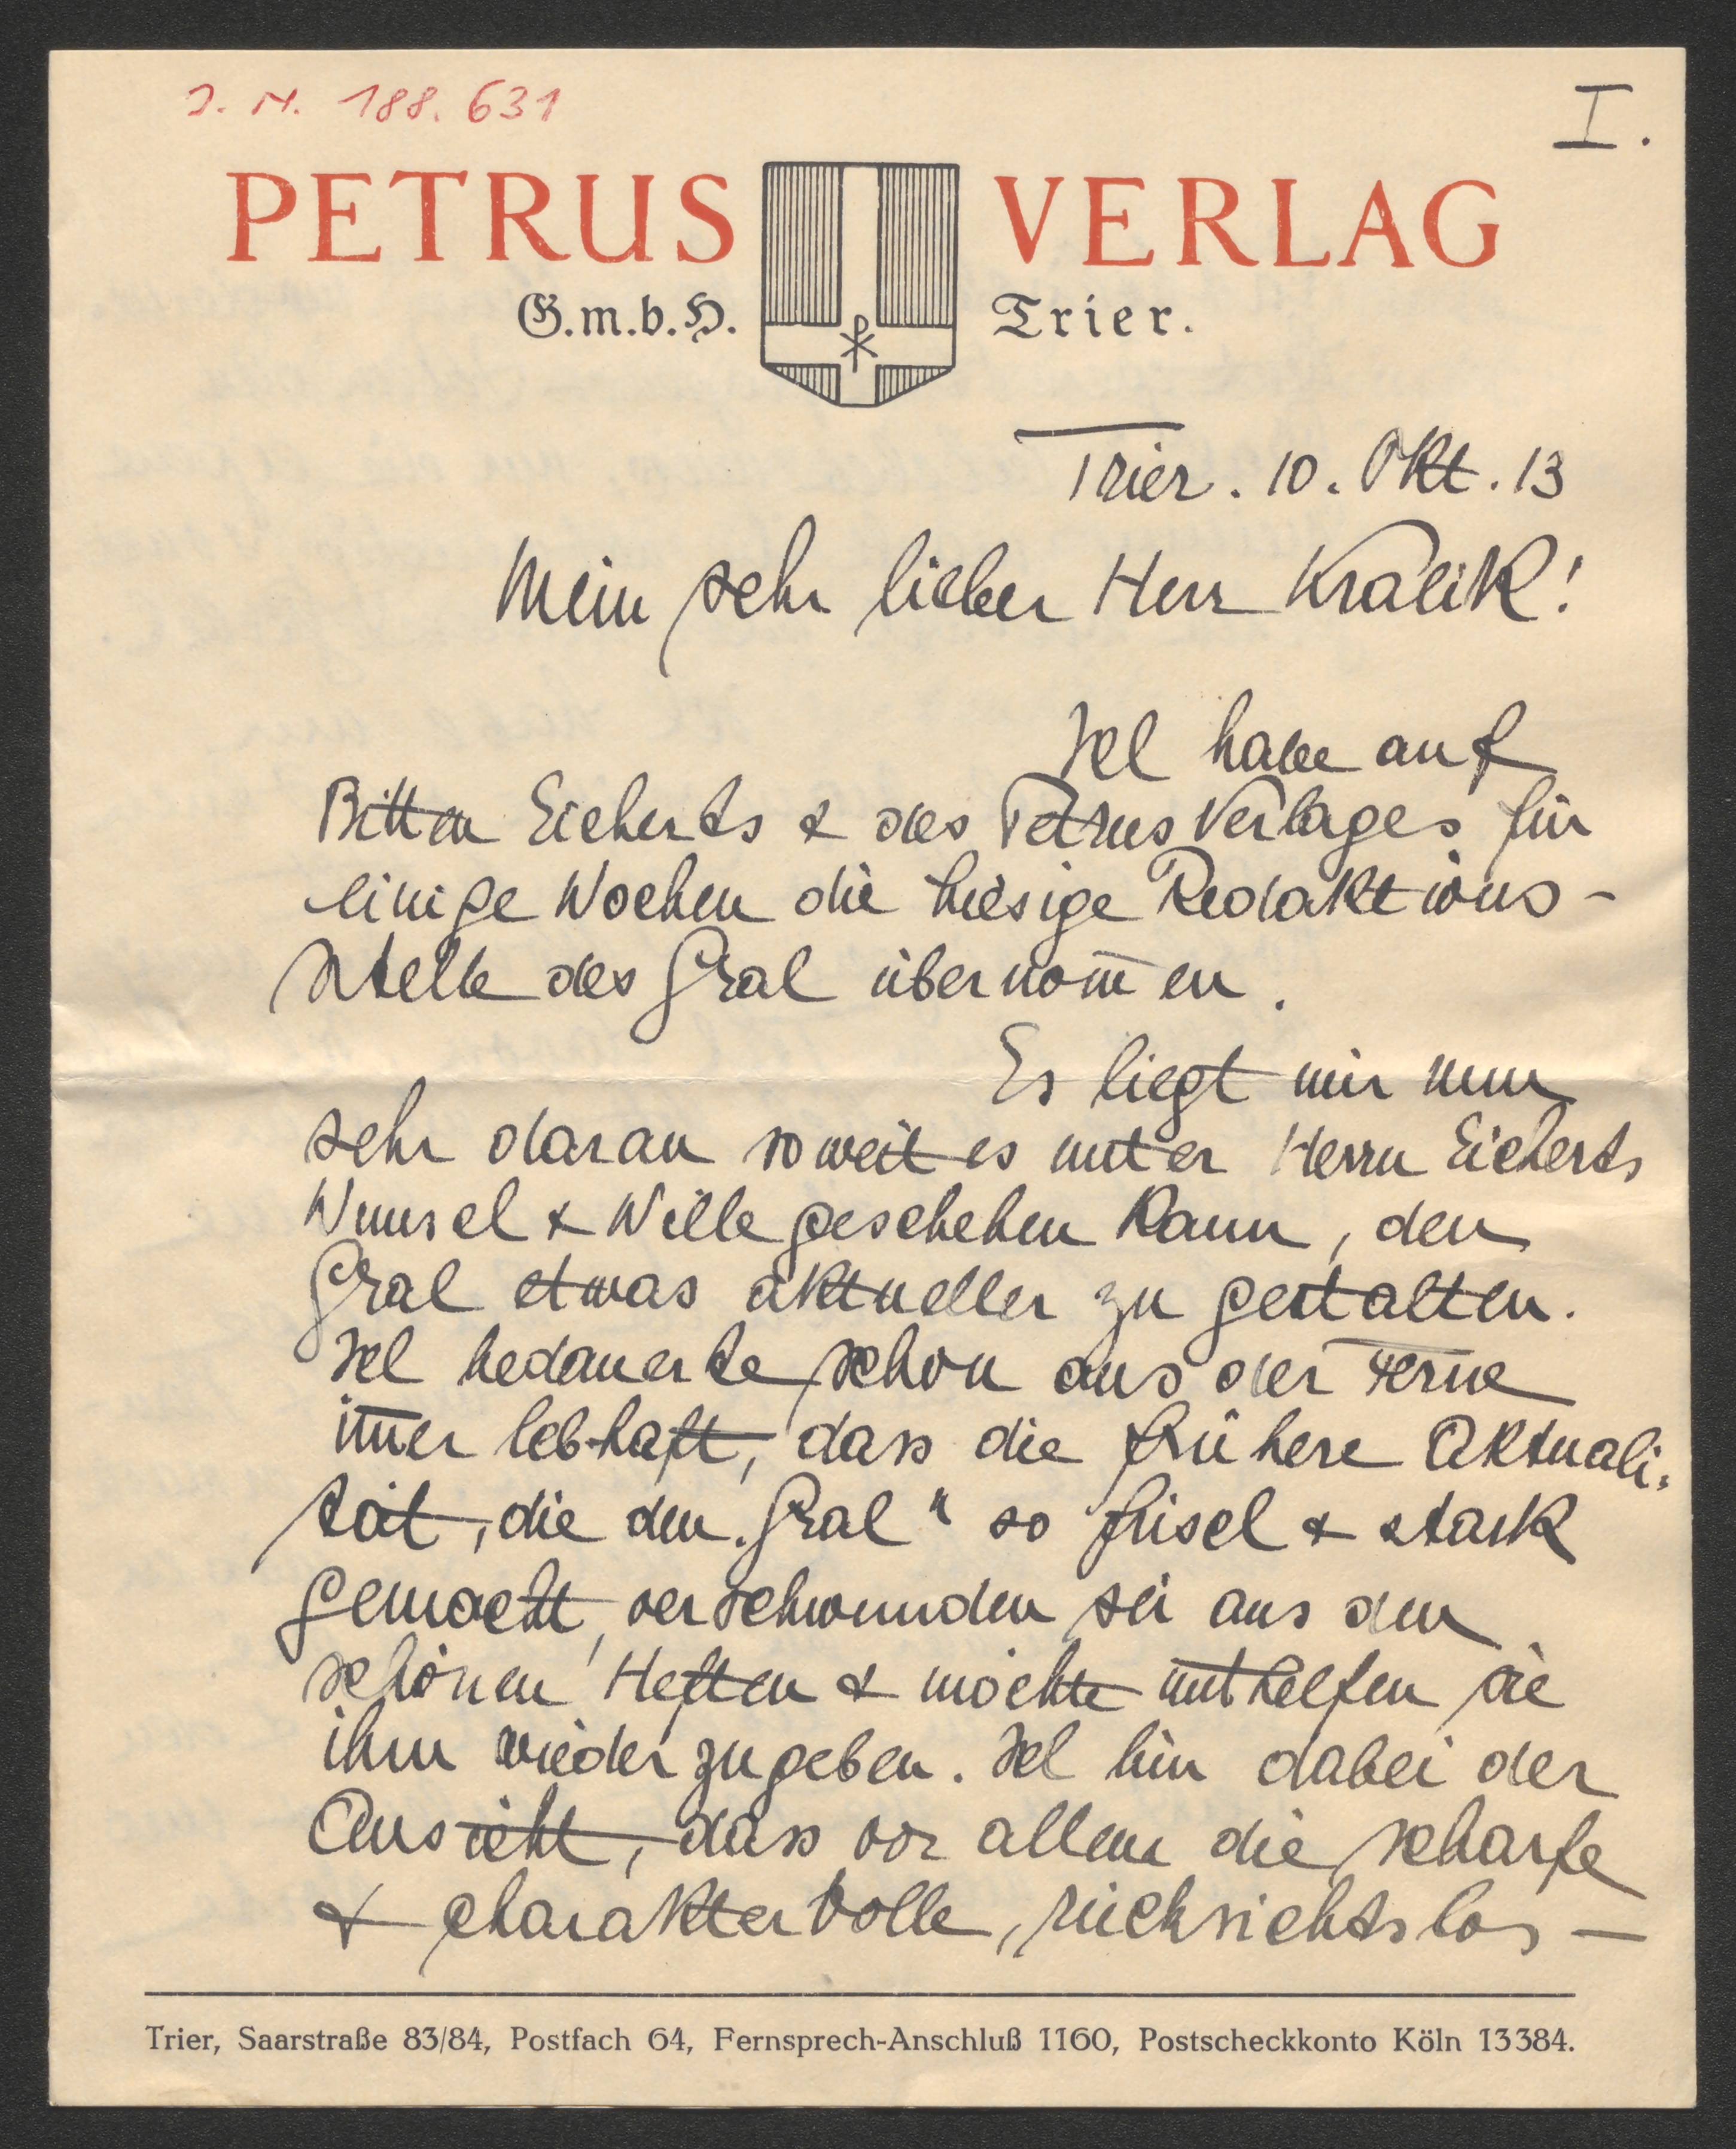 I. N. 188.631
I.
PETRUS VERLAG
G.m.b.H. Trier.
Trier. 10. Okt. 13
Mein sehr lieber Herr Kralik!
Ich habe auf
Bitten Eicherts & des Petrus Verlages für
einige Wochen die hiesige Redaktions-
stelle des Gral übernom̄en.
Es liegt mir nun
sehr daran soweit es unter Herrn Eicherts
Wunsch & Wille geschehen kann, den
Gral etwas aktueller zu gestalten.
Ich bedauerte schon aus der Ferne
im̄er lebhaft, dass die frühere Aktuali-
tät, die den „Gral“ so frisch & stark
gemacht, verschwunden sei aus den
schönen Heften & möchte mithelfen sie
ihm wiederzugeben. Ich bin dabei der
Ansicht, dass vor allem die scharfe
& charaktervolle, rücksichtslos —
Trier, Saarstraße 83/84, Postfach 64, Fernsprech-Anschluß 1160, Postscheckkonto Köln 13384.